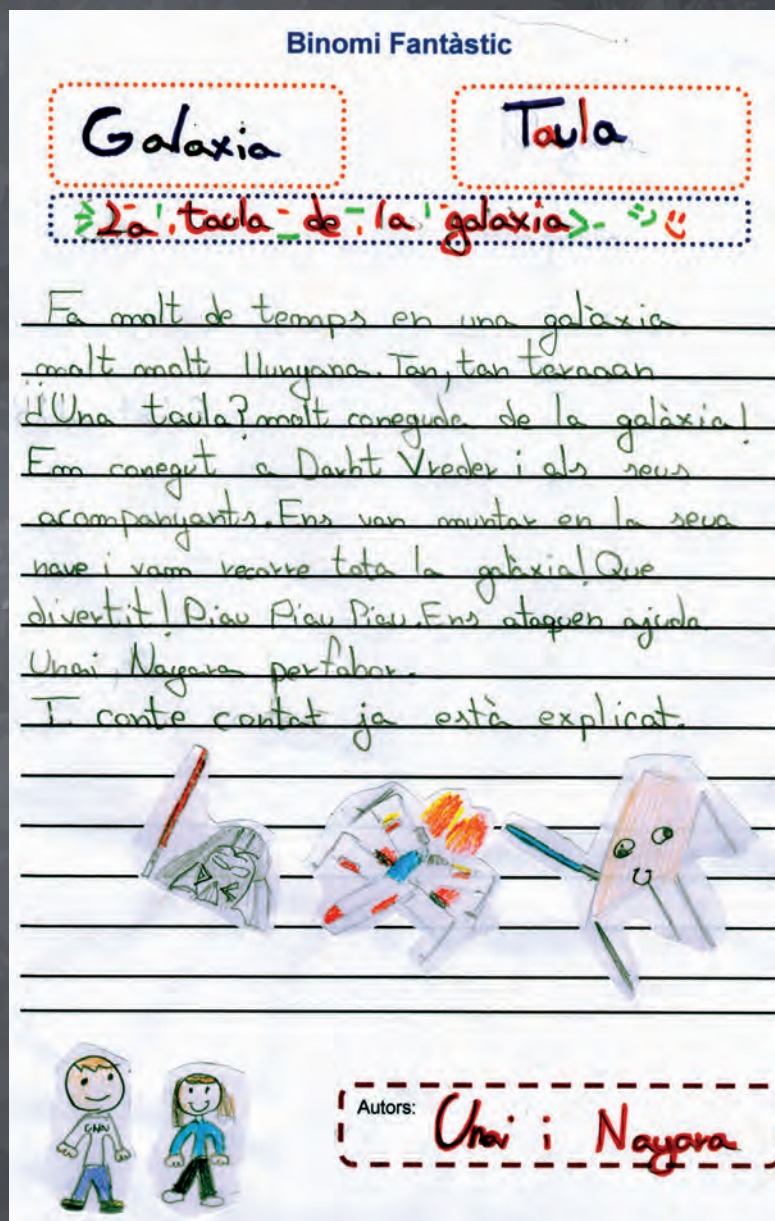 Binomi Fantàstic
Galaxia
Taula
La taula de la galaxia
Fa molt de temps en una galàxia
molt molt llunyana. Tan, tan taraaan
¿Una taula? molt coneguda de la galàxia!
Em conegut a Darht Vreder i als seus
acompanyants. Ens van muntar en la seva
nave i vam recorre tota la galàxia! Que
divertit! Piau Piau Piau. Ens ataquen ajuda
Unai, Nayara perfabor.
I conte contat ja està explicat.
Autors: Unai i Nayara